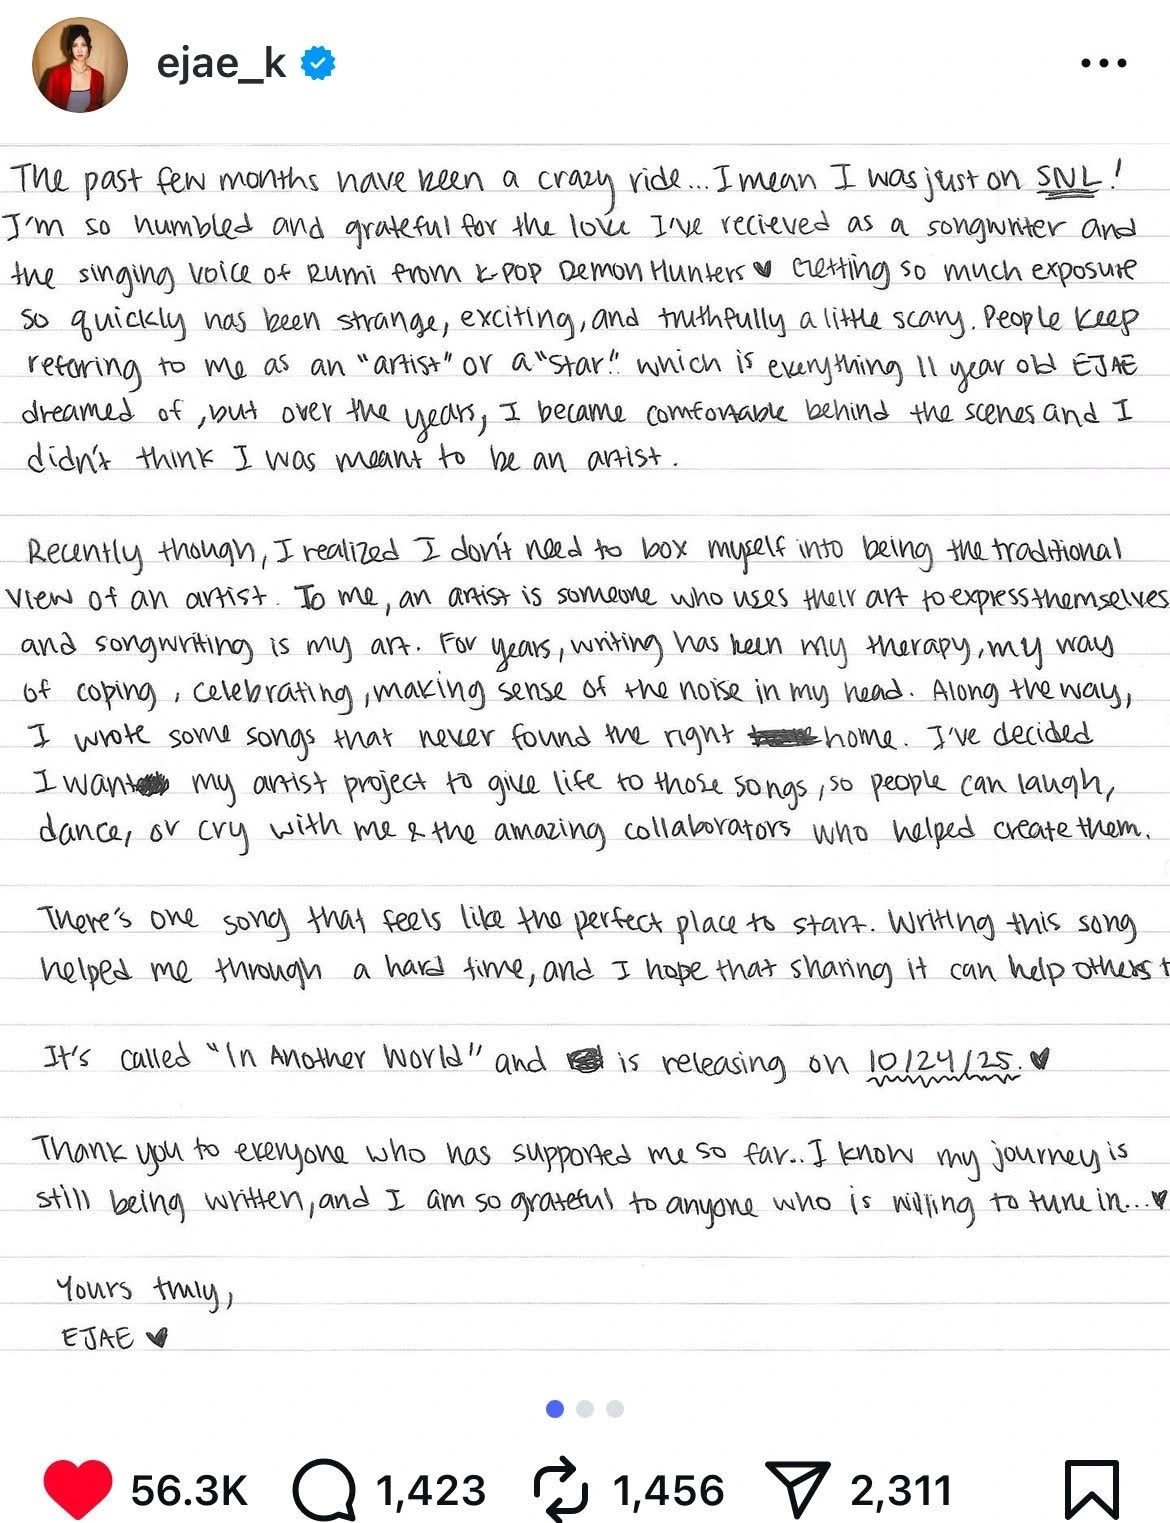 ejae_k
The past few months have been a crazy ride... I mean I was just on SNL!
I'm so humbled and grateful for the love I've recieved as a songwriter and
the singing voice of Rumi from K-POP Demon Hunters ♥ Getting so much exposure
so quickly has been strange, exciting, and truthfully a little scary. People keep
refering to me as an "artist" or a "star!" which is everything 11 year old EJAE
dreamed of, but over the years, I became comfortable behind the scenes and I
didn't think I was meant to be an artist.
Recently though, I realized I don't need to box myself into being the traditional
view of an artist. To me, an artist is someone who uses their art to express themselves
and songwriting is my art. For years, writing has been my therapy, my way
of coping, celebrating, making sense of the noise in my head. Along the way,
I wrote some songs that never found the right home. I've decided
I want my artist project to give life to those songs, so people can laugh,
dance, or cry with me & the amazing collaborators who helped create them.
There's one song that feels like the perfect place to start. Writing this song
helped me through a hard time, and I hope that sharing it can help others t
It's called "In Another World" and is releasing on 10/24/25. ♥
Thank you to everyone who has supported me so far.. I know my journey is
still being written, and I am so grateful to anyone who is willing to tune in... ♥
Yours truly,
EJAE ♥
56.3K 1,423 1,456 2,311